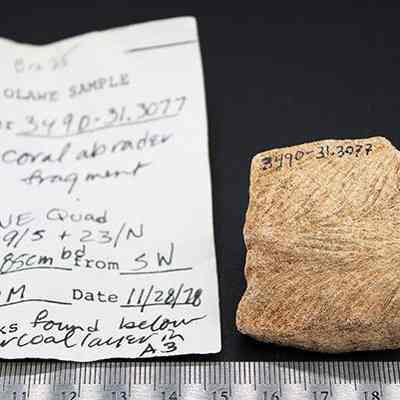 OLAWE SAMPLE
3490-31.3077
coral abrader
fragment
NE Quad
9/5 + 23/N
85cm bd from SW
M Date 11/28/78
ks found below
coal layer in
A3
3490-31.3077
11 12 13 14 15 16 17 18